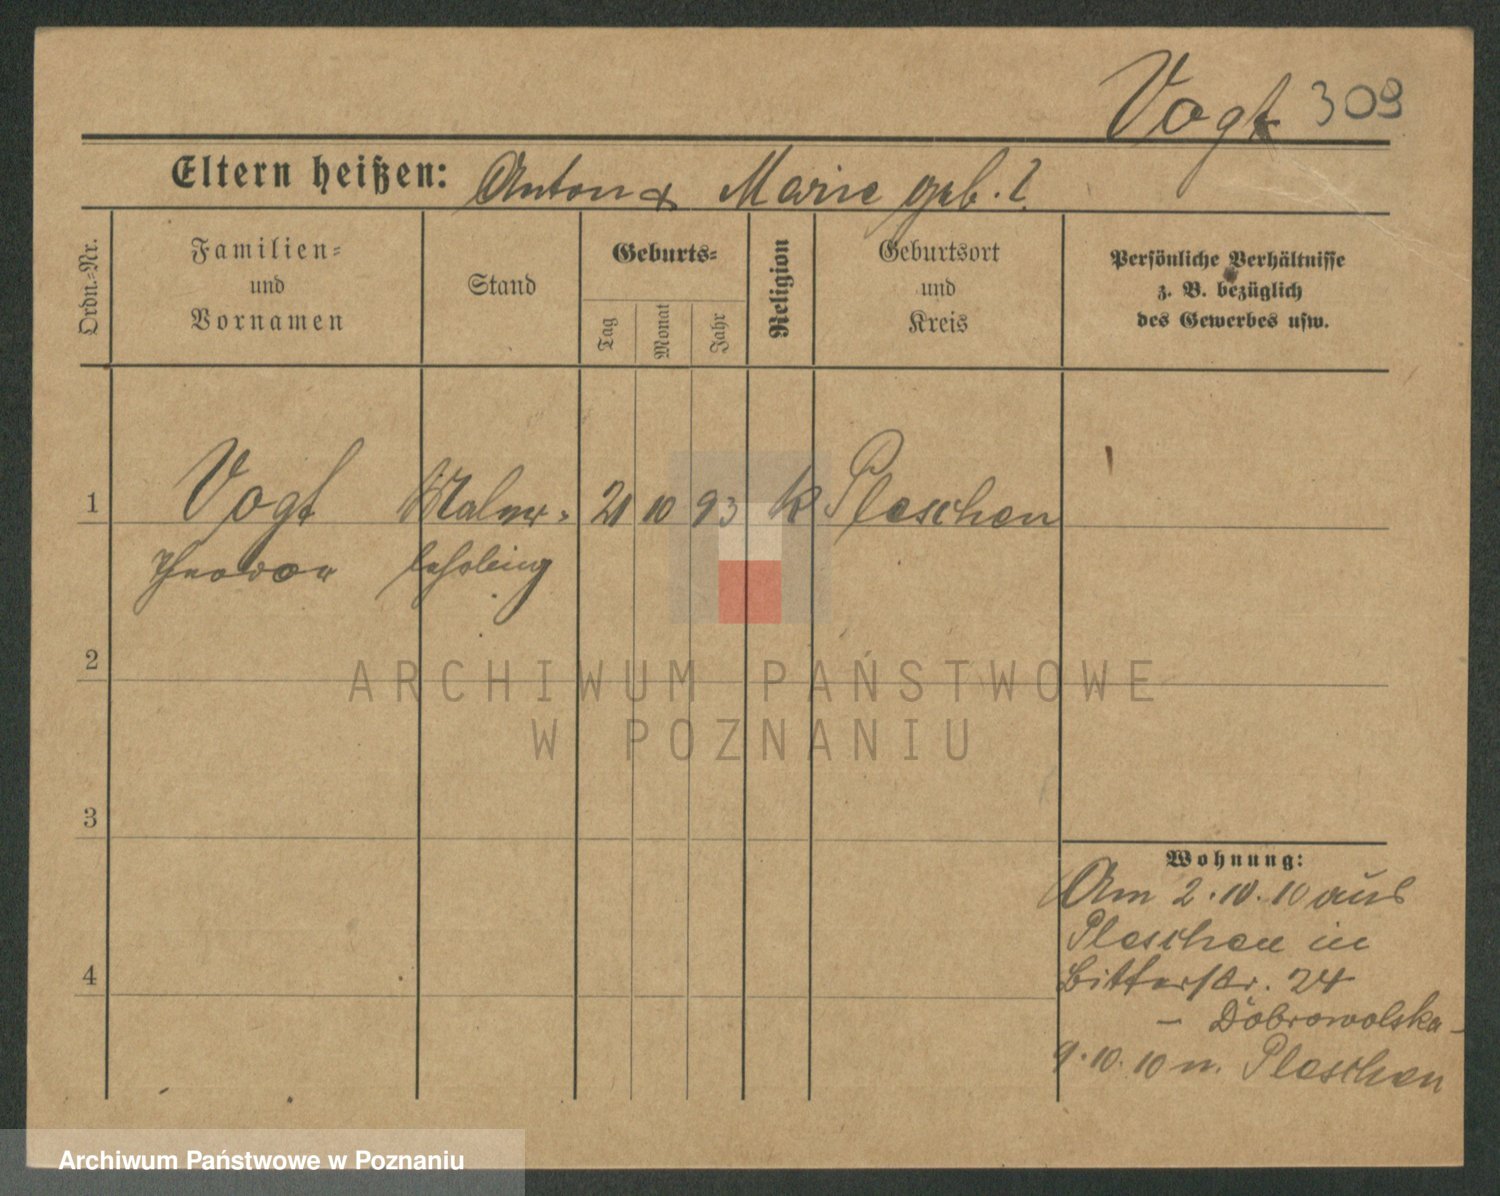 Vogt 309
Eltern heißen: Anton & Marie geb. ?
Ordn.-Nr.
Familien-
und
Vornamen
Stand
Geburts-
Tag
Monat
Jahr
Religion
Geburtsort
und
Kreis
Persönliche Verhältnisse
z. B. bezüglich
des Gewerbes usw.
1 Vogt Maler- 21 10 93 k Pleschen
Theodor lehrling
2
ARCHIWUM PAŃSTWOWE
W POZNANIU
3
Wohnung:
Am 2.10.10 aus
Pleschen in
Bitterstr. 24
- Dobrowolska -
4
9.10.10 n. Pleschen
Archiwum Państwowe w Poznaniu